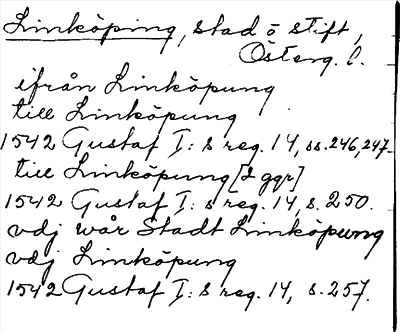 Linköping, stad o stift,
Österg. l.
ifrån Linköpung
till Linköpung
1542 Gustaf I:s reg. 14, ss. 246, 247.
till Linköpung [2 ggr]
1542 Gustaf I:s reg. 14, s. 250.
vdj wår Stadt Linköpung
vdj Linköpung
1542 Gustaf I:s reg. 14, s. 257.